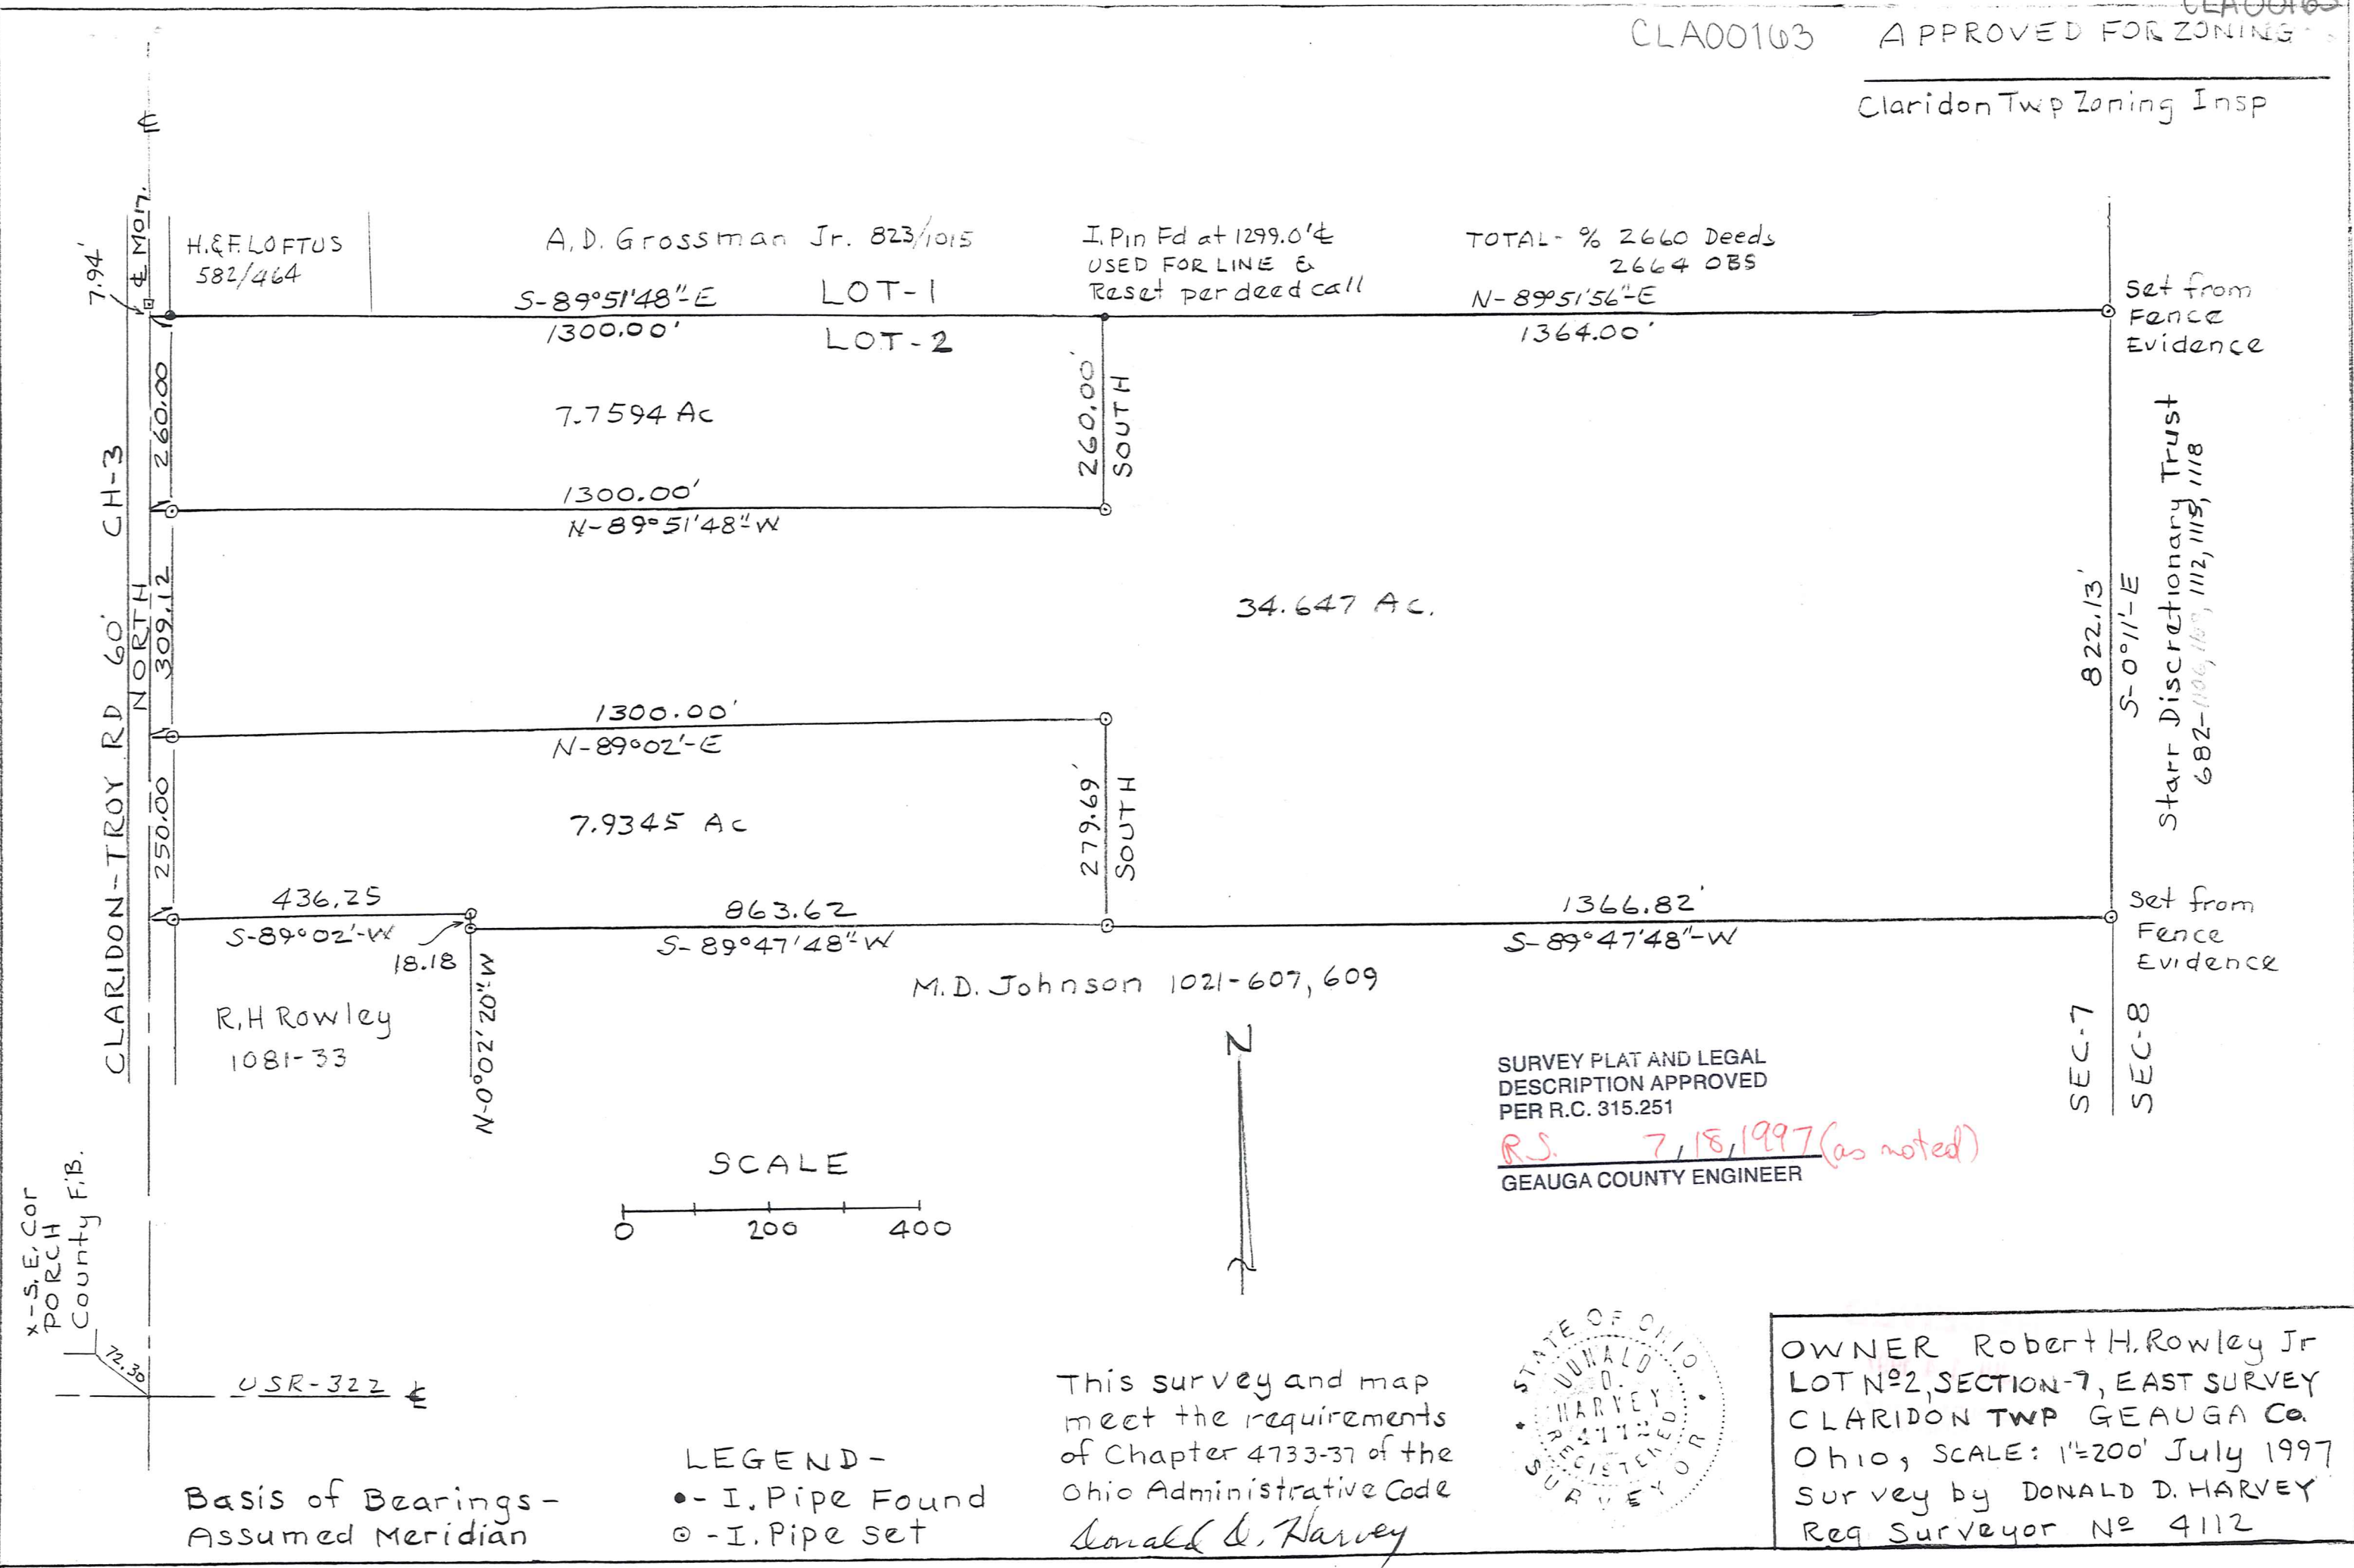 CLA00163
CLA00163 APPROVED FOR ZONING
Claridon Twp Zoning Insp
℄
7.94'
℄ MON.
H.&F. LOFTUS
582/464
A.D. Grossman Jr. 823/1015
I. Pin Fd at 1299.0'±
USED FOR LINE &
Reset per deed call
TOTAL- % 2660 Deeds
2664 OBS
S-89°51'48"-E
LOT-1
1300.00'
LOT-2
N-89°51'56"-E
1364.00'
Set from
Fence
Evidence
260.00
7.7594 Ac
260.00'
SOUTH
1300.00'
N-89°51'48"-W
CLARIDON-TROY RD 60' CH-3
NORTH
309.12
34.647 Ac.
822.13'
S-0°11'-E
Starr Discretionary Trust
682-1106, 1112, 1115, 1118
1300.00'
N-89°02'-E
250.00
7.9345 Ac
279.69'
SOUTH
436.25
S-89°02'-W
18.18
863.62
S-89°47'48"-W
1366.82'
S-89°47'48"-W
Set from
Fence
Evidence
R.H Rowley
1081-33
N-0°02'20"-W
M.D. Johnson 1021-607, 609
SEC-7
SEC-8
N
SURVEY PLAT AND LEGAL
DESCRIPTION APPROVED
PER R.C. 315.251
R.S. 7,18,1997 (as noted)
GEAUGA COUNTY ENGINEER
SCALE
0 200 400
x-S.E. Cor
PORCH
County F.B.
72.30
USR-322 ℄
Basis of Bearings-
Assumed Meridian
LEGEND-
●- I. Pipe Found
⊙ -I. Pipe set
This survey and map
meet the requirements
of Chapter 4733-37 of the
Ohio Administrative Code
Donald D. Harvey
STATE OF OHIO
DONALD
D.
HARVEY
4112
REGISTERED
SURVEYOR
OWNER Robert H. Rowley Jr
LOT Nº2, SECTION-7, EAST SURVEY
CLARIDON TWP GEAUGA Co.
Ohio, SCALE: 1"=200' July 1997
Survey by DONALD D. HARVEY
Reg Surveyor Nº 4112